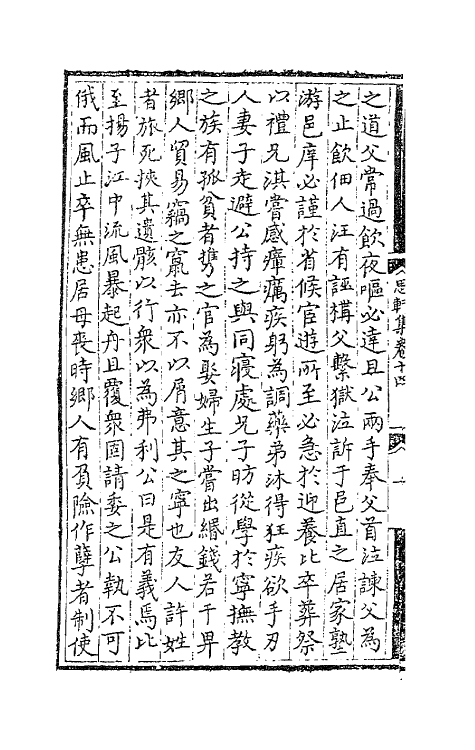 之道父常過飲夜嘔必達旦公兩手奉父首泣諫父為
之止飲佃人汪有誣構父繫獄泣訴于邑直之居家塾
游邑庠必謹於省候宦遊所至必急於迎養比卒葬祭
以禮兄淇嘗感瘴癘疾躬為調藥弟沐得狂疾欲手刃
人妻子走避公持之與同寢處兄子昉從學於寧撫教
之族有孤貧者携之官為娶婦生子嘗出緡錢若干畀
鄉人貿易竊之竄去亦不以屑意其之寧也友人許姓
者旅死挾其遺骸以行衆以為弗利公曰是有義焉比
至揚子江中流風暴起舟且覆衆固請委之公執不可
俄而風止卒無患居母喪時鄉人有負險作孽者制使
思軒集卷十四